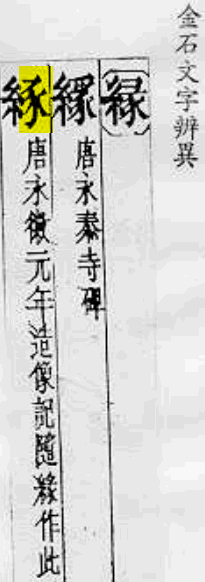 金石文字辨異
緣
唐永泰寺碑
唐永徽元年造像記隨緣作此